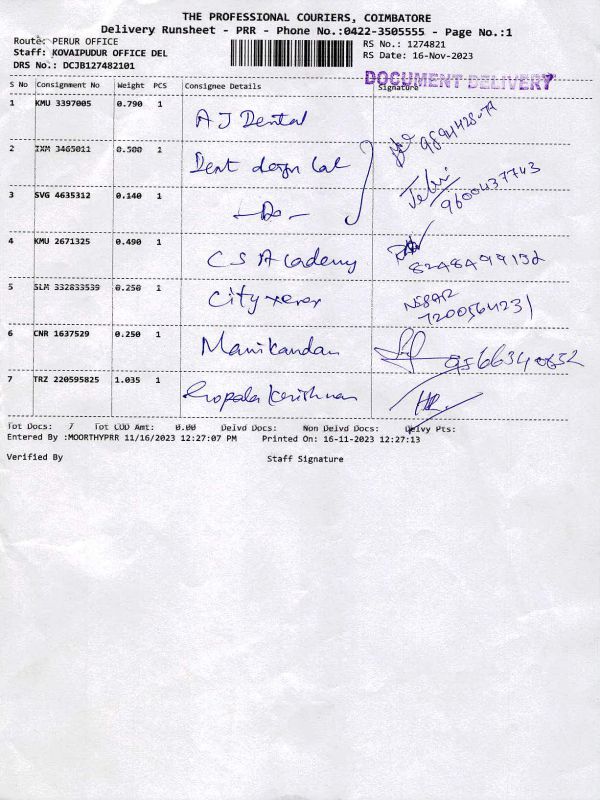 THE PROFESSIONAL COURIERS, COIMBATORE
Delivery Runsheet - PRR - Phone No.:0422-3505555 - Page No.:1
Route: PERUR OFFICE
RS No.: 1274821
Staff: KOVAIPUDUR OFFICE DEL
RS Date: 16-Nov-2023
DRS No.: DCJB127482101
DOCUMENT DELIVERY
S No Consignment No Weight PCS Consignee Details Signature
1 KMU 3397005 0.790 1 A J Dental
2 IXM 3465011 0.500 1 Dent design lab
3 SVG 4635312 0.140 1 -Do- 9600437743
4 KMU 2671325 0.490 1 C S Academy 8248499152
5 SLM 332833539 0.250 1 City xerox 7200564231
6 CNR 1637529 0.250 1 Manikandan
7 TRZ 220595825 1.035 1 Gopala Krishnan
Tot Docs: 7 Tot COD Amt: 0.00 Delvd Docs: Non Delvd Docs: Delvy Pts:
Entered By :MOORTHYPRR 11/16/2023 12:27:07 PM Printed On: 16-11-2023 12:27:13
Verified By Staff Signature